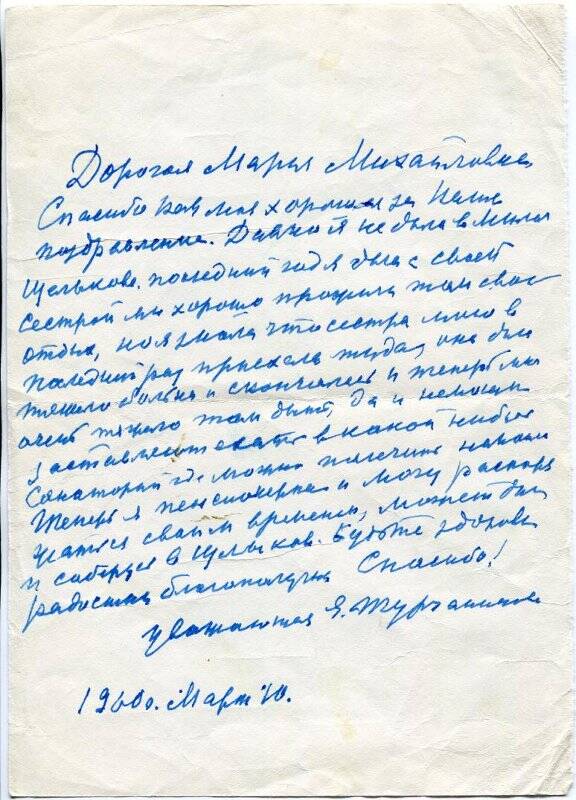 Дорогая Мария Михайловна
Спасибо Вам моя хорошая за Ваше
поздравление. Давно я не была в милом
Щелыкове, последний год я была с своей
сестрой мы хорошо прожили там свой
отдых, но я знала что сестра моя в
последний раз приехала туда, она была
тяжело больна и скончалась и теперь мне
очень тяжело там быть, да и
заставляют ехать в какой нибудь
санаторий где можно
Теперь я пенсионерка и могу распоря
жаться своим временем, может быть
и соберусь в Щелыково. Будьте здоровы
радостны благополучны Спасибо!
уважающая Е. Турчанинова
1960г. Март 10.